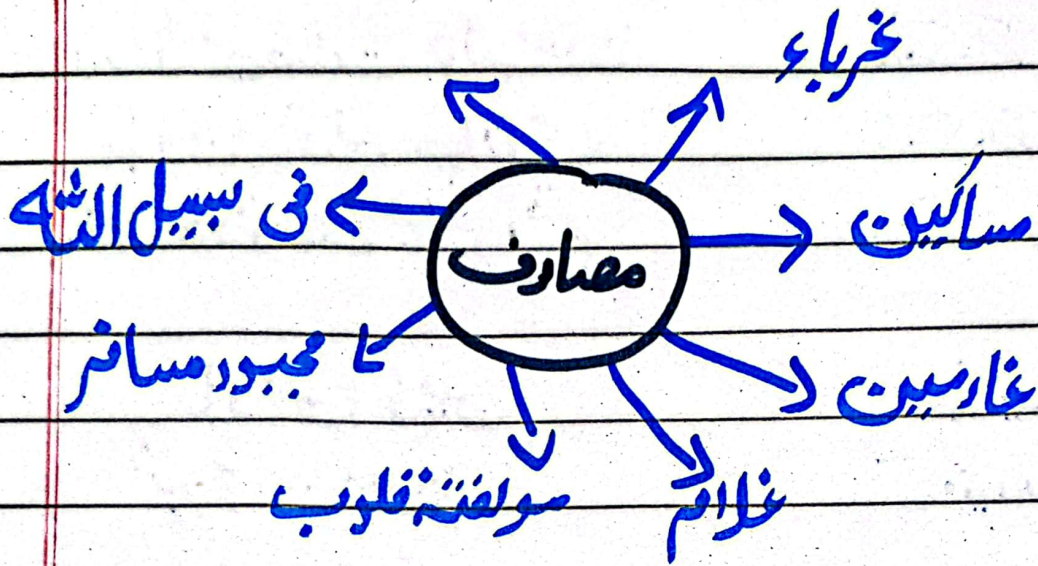 غرباء
مساکین
غارمین
غلام
مولفتہ قلوب
مجبور مسافر
فی سبیل اللہ
مصارف